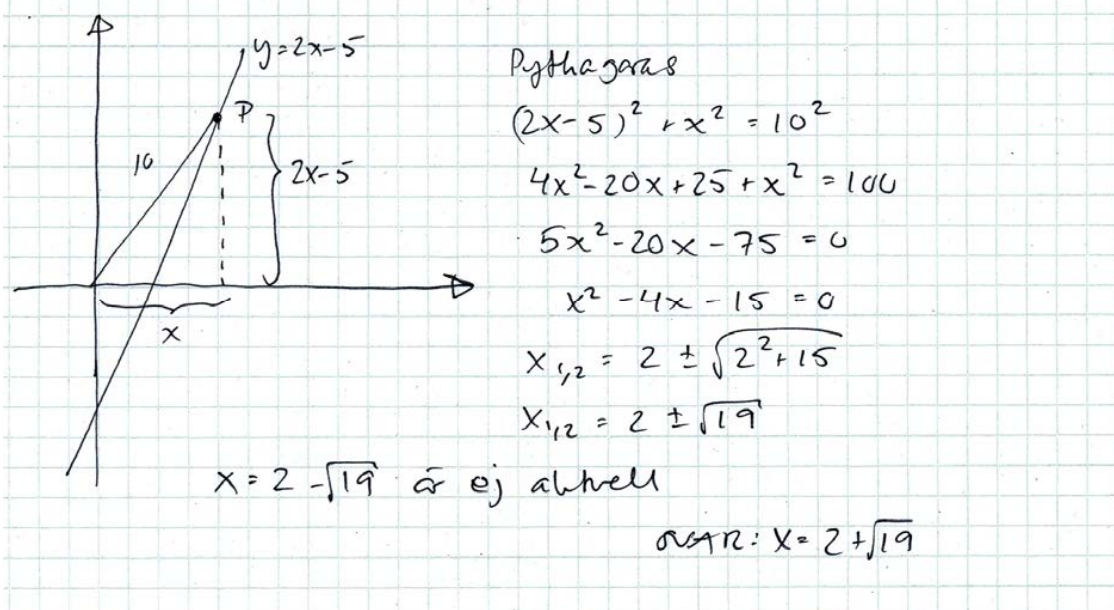 y=2x-5
P
10
2x-5
x
Pythagoras
(2x-5)² + x² = 10²
4x²-20x+25+x² = 100
5x²-20x-75 = 0
x² -4x -15 = 0
x₁,₂ = 2 ± √(2²+15)
x₁,₂ = 2 ± √19
x = 2 -√19 är ej aktuell
SVAR: x = 2+√19